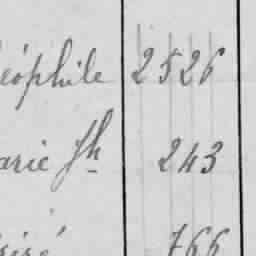 éophile 2526
arie Jh 243
siré 766